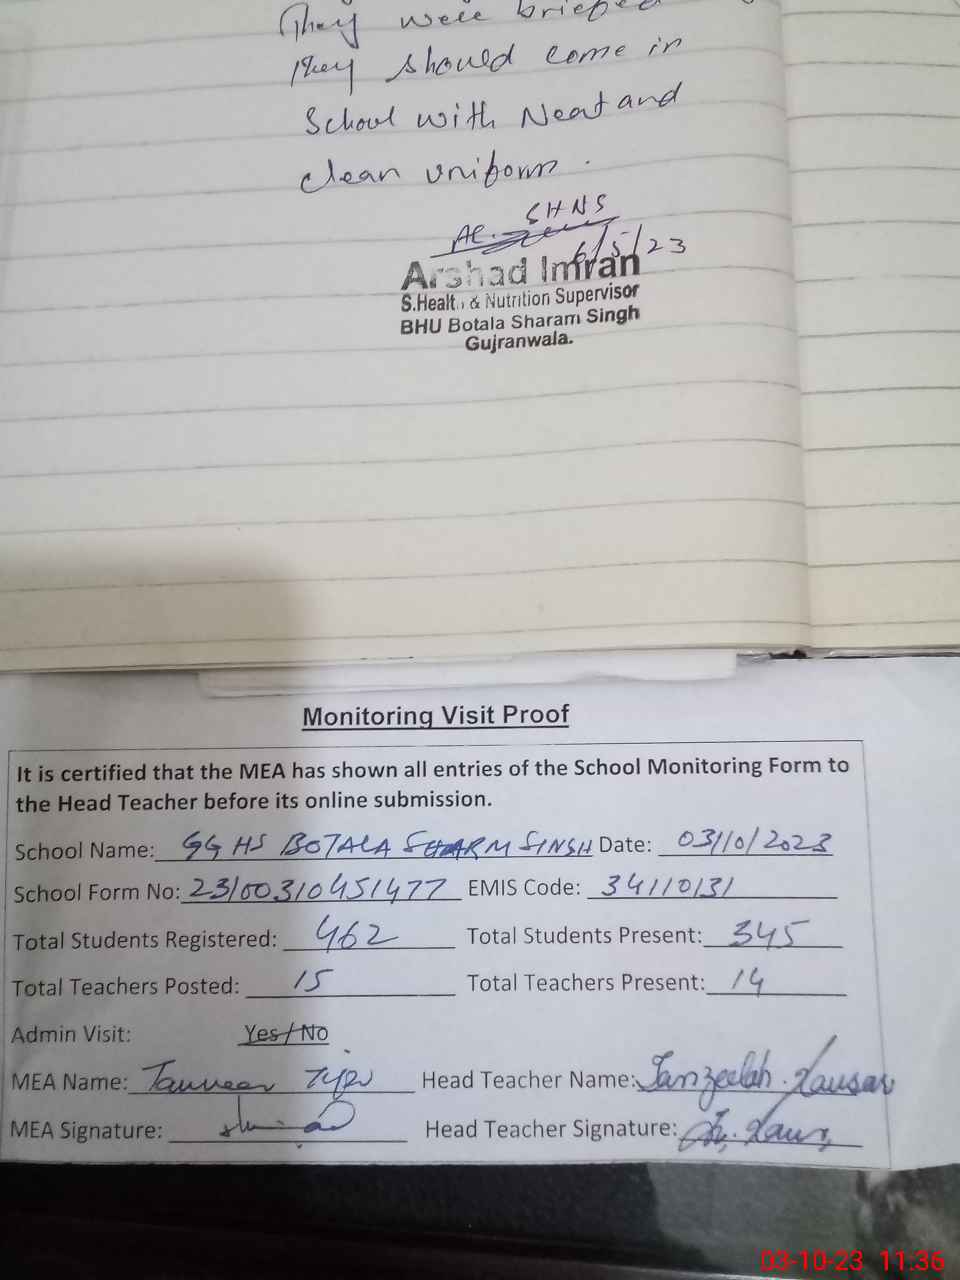 They were briefed
They should come in
School with Neat and
clean uniform.
SHNS
6/5/23
Arshad Imran
S.Health & Nutrition Supervisor
BHU Botala Sharam Singh
Gujranwala.
Monitoring Visit Proof
It is certified that the MEA has shown all entries of the School Monitoring Form to
the Head Teacher before its online submission.
School Name: GGHS BOTALA SHARM SINSH Date: 03/10/2023
School Form No: 23100310451477 EMIS Code: 34110131
Total Students Registered: 462 Total Students Present: 345
Total Teachers Posted: 15 Total Teachers Present: 14
Admin Visit: Yes/No
MEA Name: Tanveer Head Teacher Name: Tanzeelah Kausar
MEA Signature: Head Teacher Signature:
03-10-23 11:36